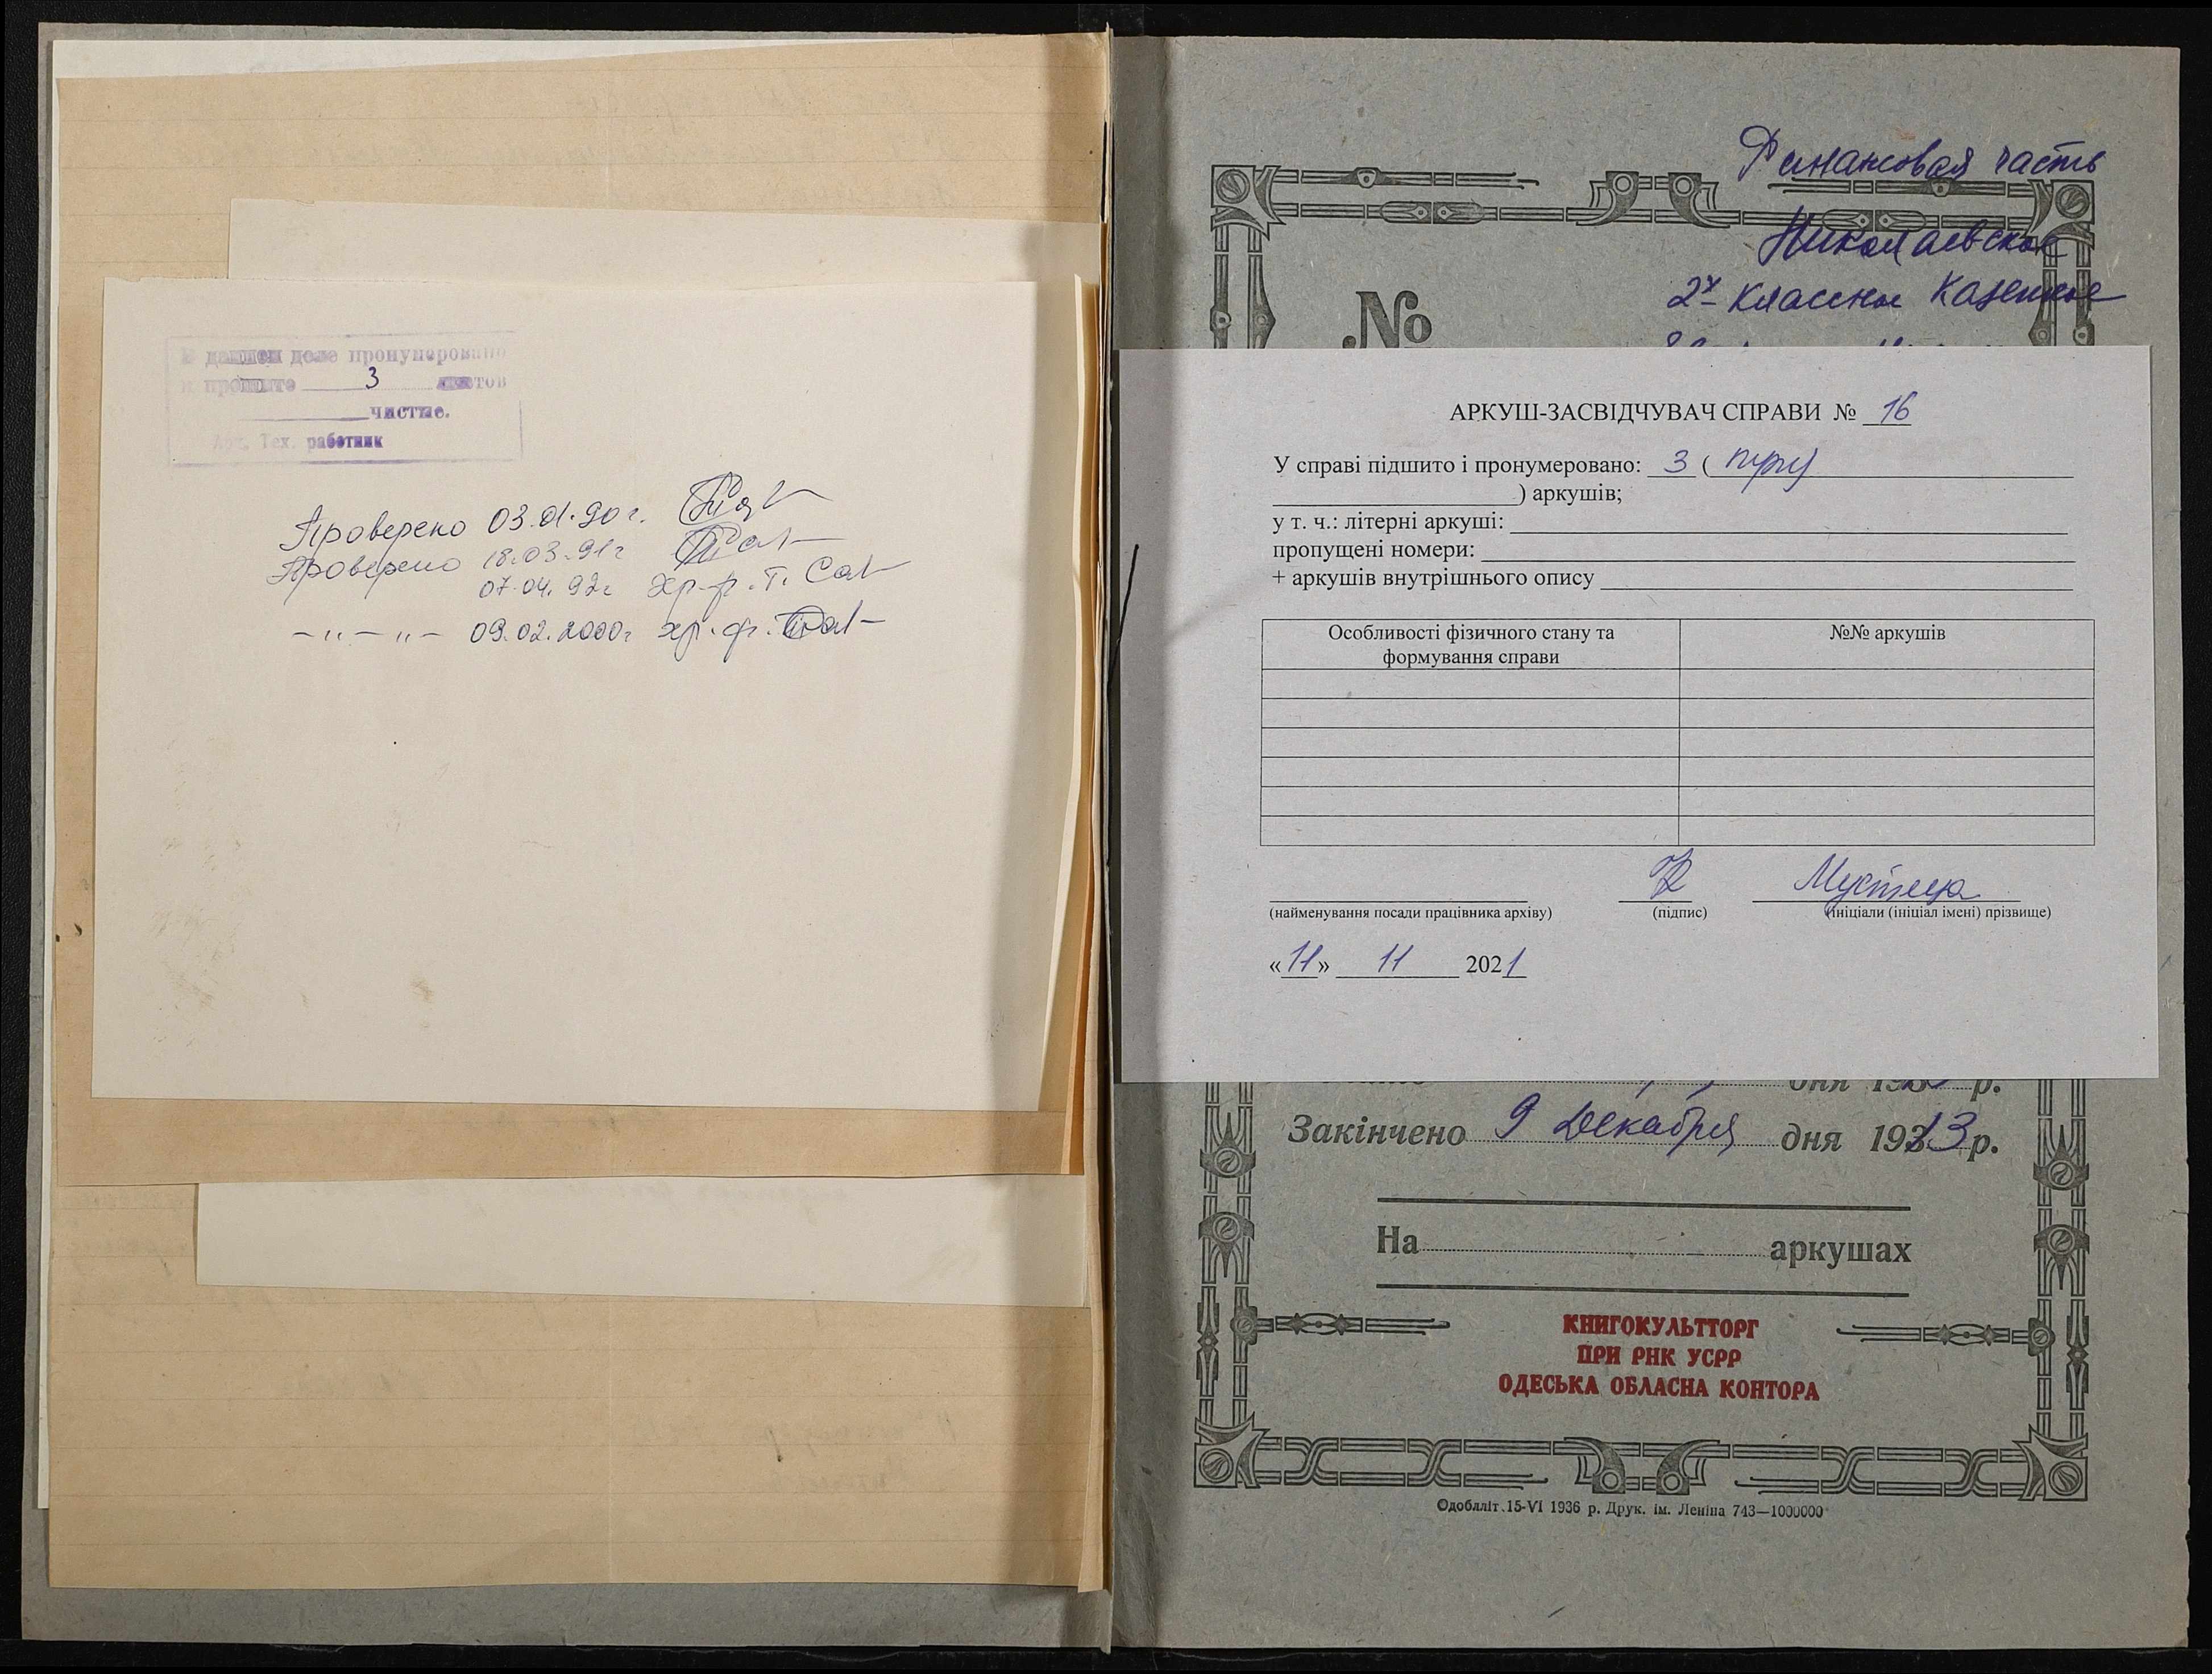 В данном деле пронумеровано
и прошито 3 листов
чистые.
Арх. Тех. работник
Проверено 03.01.90 г.
Проверено 18.03.91 г
07.04.92 г хр-р. Т.
-〃-〃- 09.02.2000 г хр. ф.
Финансовая часть
Николаевское
2х классное казенное
№
АРКУШ-ЗАСВІДЧУВАЧ СПРАВИ № 16
У справі підшито і пронумеровано: 3 ( три
) аркушів;
у т. ч.: літерні аркуші:
пропущені номери:
+ аркушів внутрішнього опису
Особливості фізичного стану та
формування справи
№№ аркушів
Мустеца
(найменування посади працівника архіву) (підпис) (ініціали (ініціал імені) прізвище)
«11» 11 2021
дня 19 р.
Закінчено 9 Декабря дня 1913 р.
На аркушах
КНИГОКУЛЬТТОРГ
ПРИ РНК УСРР
ОДЕСЬКА ОБЛАСНА КОНТОРА
Одоблліт. 15-VI 1936 р. Друк. ім. Леніна 743—1000000